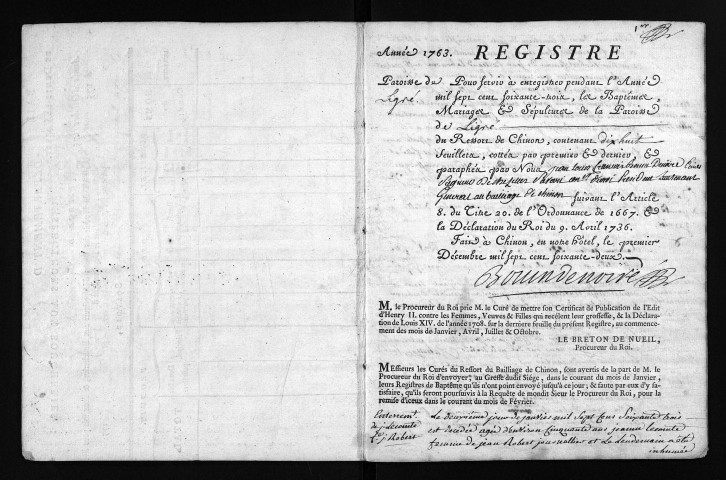 1er
Année 1763. REGISTRE
Paroisse de
Ligré.
Pour servir à enregistrer pendant l'Année
mil sept cent soixante-trois, les Baptêmes,
Mariages & Sépultures de la Paroisse
de Ligré
du Ressort de Chinon, contenant dix huit
feuillets, cottés par premier & dernier, &
paraphés par Nous,
général au bailliage de chinon suivant l'Article
8. du Titre 20. de l'Ordonnance de 1667. &
la Déclaration du Roi du 9. Avril 1736.
Fait à Chinon, en notre hôtel, le premier
Décembre mil sept cent soixante-deux.
Bouin de noiré
M. le Procureur du Roi prie M. le Curé de mettre son Certificat de Publication de l'Edit
d'Henry II. contre les Femmes, Veuves & Filles qui recèlent leur grossesse, & la Déclara-
tion de Louis XIV. de l'année 1708. sur la derniere feuille du présent Registre, au commence-
ment des mois de Janvier, Avril, Juillet & Octobre.
LE BRETON DE NUEIL,
Procureur du Roi.
MEssieurs les Curés du Ressort du Bailliage de Chinon, sont avertis de la part de M. le
Procureur du Roi d'envoyer au Greffe dudit Siége, dans le courant du mois de Janvier,
leurs Registres de Baptême qu'ils n'ont point envoyé jusqu'à ce jour; & faute par eux d'y sa-
tisfaire, qu'ils seront poursuivis à la Requête de mondit Sieur le Procureur du Roi, pour la
remise d'iceux dans le courant du mois de Février.
Enterrement
de j Lecomte
fe j Robert
Le deuxieme jour de janvier mil Sept Cens Soixante trois
est decedée agée d'environ Cinquante ans jeanne Lecomte
femme de jean Robert journallier et Le Lendemain a été
inhumée